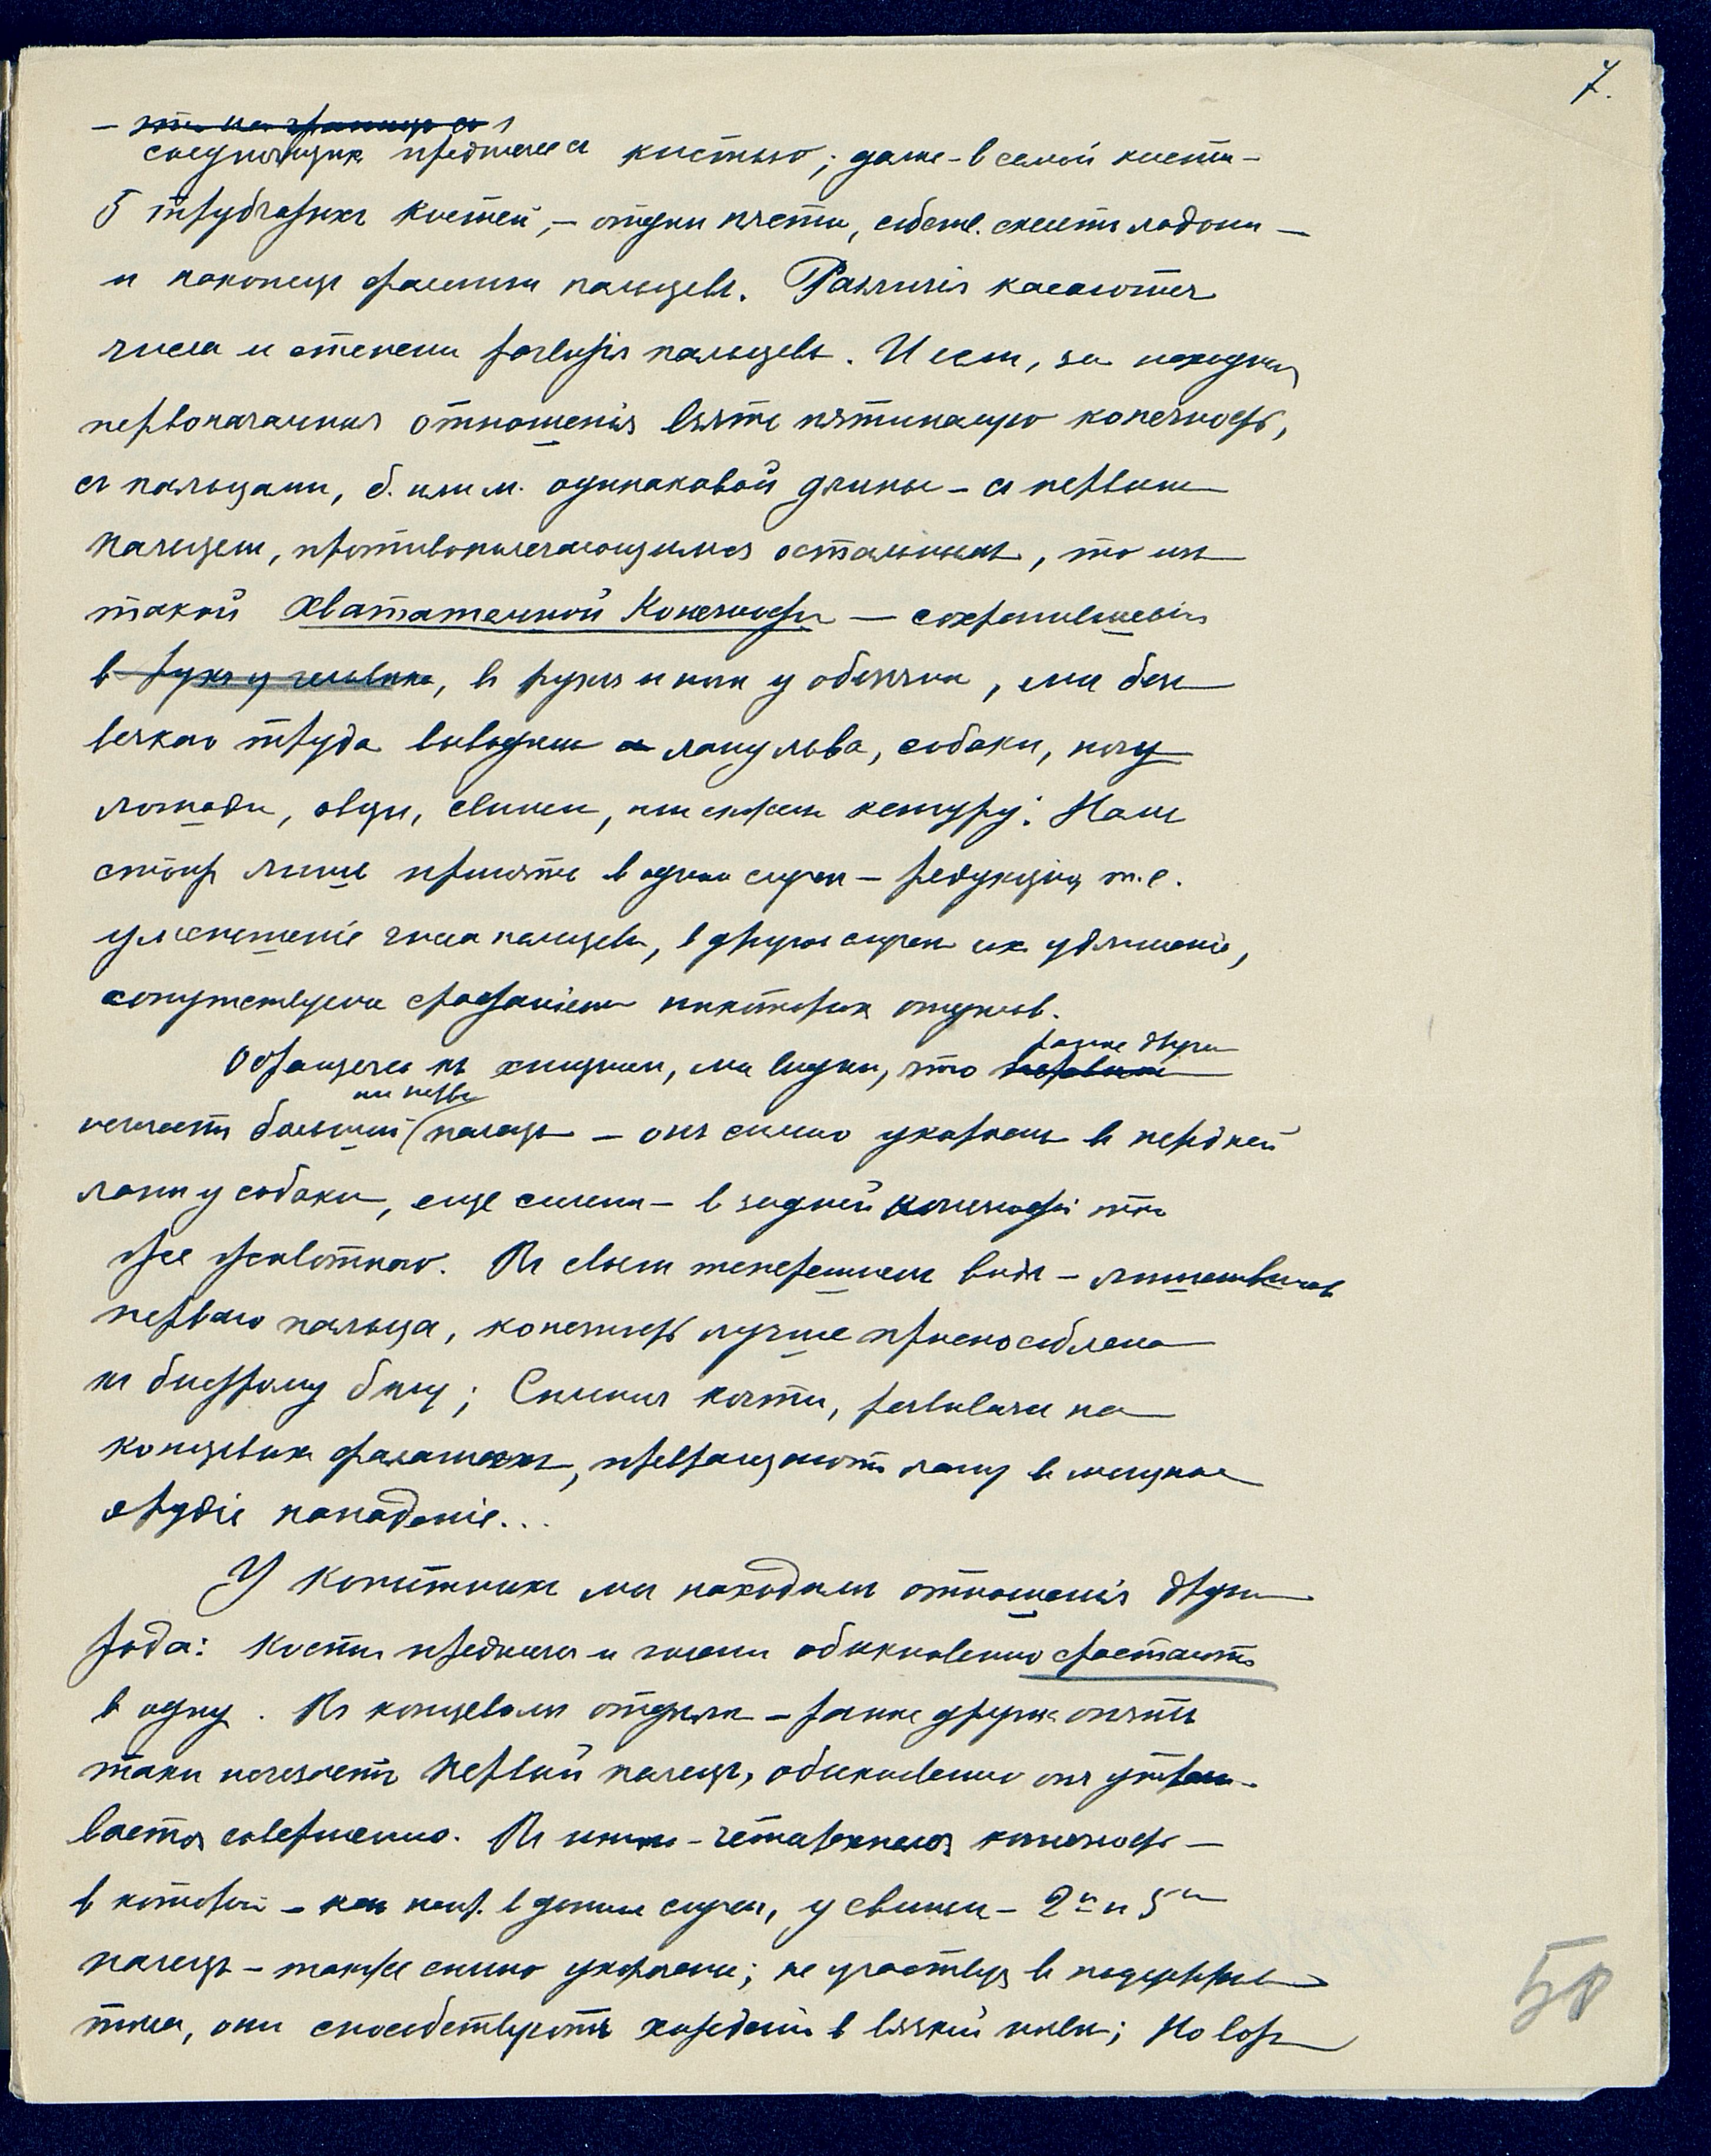 7.
соединяющихъ предплечье съ кистью; далѣе - в самой кисти -
5 трубчатыхъ костей, - отдѣлъ пясти, собств. скелетъ ладони -
и наконецъ фаланги пальцевъ. Различія касаются
числа и степени развитія пальцевъ. И если, за исходныя
первоначальныя отношенія взять пятипалую конечность,
съ пальцами, б. или м. одинаковой длины - съ первымъ
пальцемъ, противополагающимся остальнымъ, то изъ
такой хватательной конечности - сохранившейся
в рукѣ у человѣка, въ рукахъ и ногахъ у обезьянъ, мы безъ
всякаго труда выводимъ лапу льва, собаки, ногу
лошади, овцы, свиньи, или кенгуру: Намъ
стоитъ лишь принять в одномъ случаѣ - редукцію, т.е.
уменьшеніе числа пальцевъ, в другомъ случаѣ ихъ удлиненіе,
сопутствуемое срастаніемъ нѣкоторыхъ отдѣловъ.
раньше другихъ
Обращаясь къ хищнымъ, мы видимъ, что
или первый
исчезаетъ большой палецъ - онъ сильно укороченъ въ передней
лапѣ у собаки, еще сильнѣе - в задней конечности того
же животнаго. Въ своемъ теперешнемъ видѣ - лишившись
перваго пальца, конечность лучше приспособлена
къ быстрому бѣгу; Сильные когти, развиваясь на
концевыхъ фалангахъ, превращаютъ лапу въ мощное
орудіе нападенія...
У копытныхъ мы находимъ отношенія другого
рода: Кости предплечья и голени обыкновенно срастаются
в одну. Въ концевомъ отдѣлѣ - раньше другихъ опять
таки исчезаетъ первый палецъ, обыкновенно онъ утрачи-
вается совершенно. Въ иныхъ - четырехпалая конечность -
в которой - напр. в данномъ случаѣ, у свиньи - 2й и 5й
палецъ - также сильно укорочены; не участвуя въ поддержкѣ
тѣла, они способствуютъ хожденію в вязкой почвѣ; Но
50